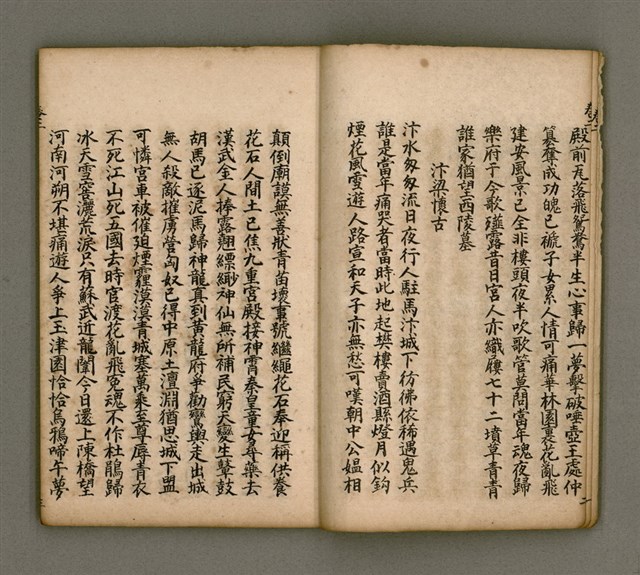 殿前瓦落飛鴛鴦半生心事歸一夢擊破唾壺王處仲
篡奪成功魄已褫子女累人情可痛華林園裏花亂飛
建安風景已全非樓頭夜半吹歌管莫問當年魂夜歸
樂府于今歌薤露昔日宮人亦織屨七十二墳草青青
誰家猶望西陵墓
汴梁懷古
汴水匆匆流日夜行人駐馬汴城下彷彿依稀遇鬼兵
誰是當年痛哭者當時此地起樊樓賣酒縣燈月似鈎
煙花風雪遊人路宣和天子亦無愁可嘆朝中公媼相
顛倒廟謨無善狀青苗壞事號繼繩花石奉迎稱供養
花石人間土已焦九重宮殿接神霄秦皇童女尋藥去
漢武金人捧露翹縹緲神仙無所補民窮天變生鼙鼓
胡馬已逐泥馬歸神龍真到黃龍府爭勸鸞輿走出城
無人殺敵摧虜營匈奴已得中原土澶淵猶思城下盟
可憐宮車被催迫煙霾漠漠青城塞萬乘至尊辱青衣
不死江山死五國去時官渡花亂飛冤魂不作杜鵑歸
冰天雪窖灑荒淚只有蘇武近龍闈今日還上陳橋望
河南河朔不堪痛遊人爭上玉津園恰恰烏鴉啼午夢
卷二
二